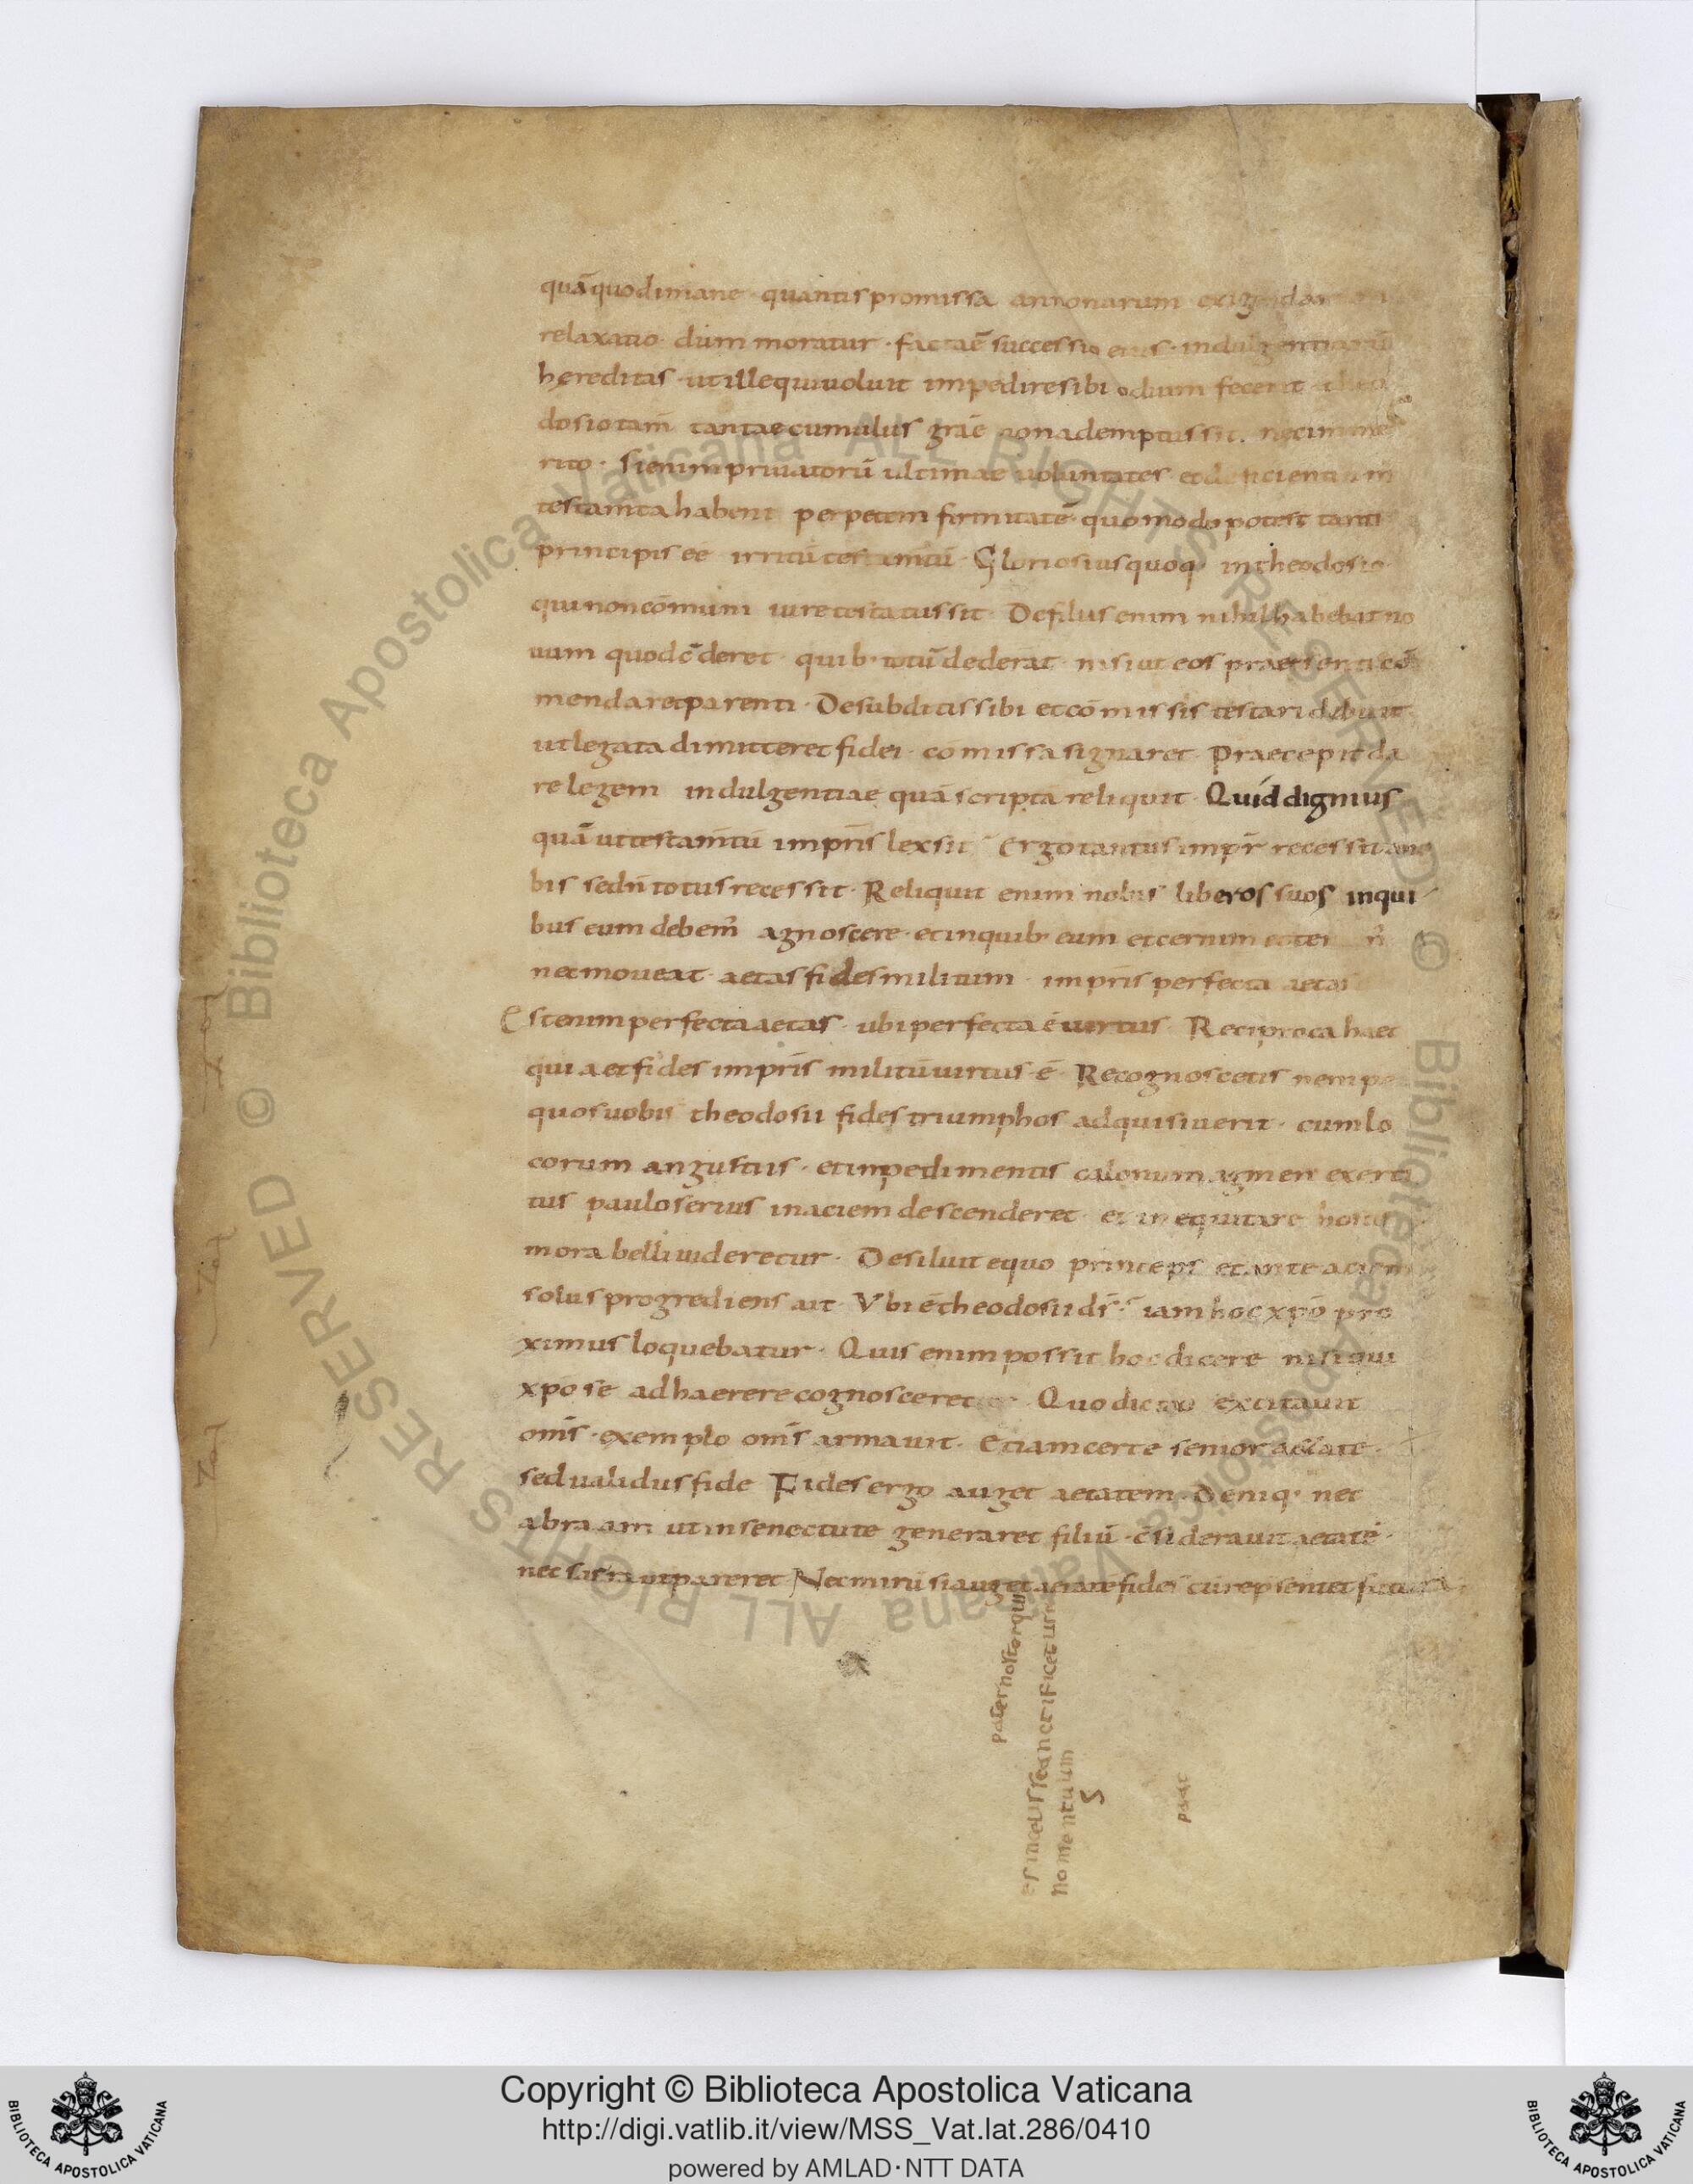 quā quod inmane quantis promissa annonarum
relaxatio dum moratur · facta ē successio eius · indulgentiarū
hereditas · ut ille qui uoluit impedire sibi odium fecerit · theo
dosio tam tantae cumulus grāe non ademptus sit · nec inme
rito · Si enim priuatorū ultimae uoluntates et deficientium
testam̄ta habent perpetem firmitatē · quomodo potest tanti
principis eē irritū testam̄tū · Gloriosius quoq; in theodosio
qui non cōmuni iure testatus sit · De filiis enim nihil habebat no
uum quod c̄deret · quib· totū dederat · nisi ut eos praesenti cō
mendaret parenti · De subditis sibi et cōmissis testari debuit
ut legata dimitteret fidei · cōmissa signaret · praecepit da
re legem indulgentiae quā scriptā reliquit · Quid dignius
quā ut testam̄tū impr̄is lex sit Ergo tantus impr̄ recessit a no
bis sed n̄ totus recessit · Reliquit enim nobis liberos suos in qui
bus eum debem̄ agnoscere · et in quib· eum et cernim
nec moueat · aetas fides militum · impr̄is perfecta aetas
Est enim perfecta aetas · ubi perfecta ē uirtus Reciproca haec
quia et fides impr̄is militū uirtus ē · Recognoscetis nempe
quos uobis theodosii fides triumphos adquisiuerit · cum lo
corum angustiis · et impedimentis calonum agmen exerci
tus paulo serius in aciem descenderet · et inequitare hostis
mora belli uideretur · Desiluit equo princeps et ante aciem
solus progrediens ait · Vbi ē theodosii d̄s · iam hoc xp̄o pro
ximus loquebatur · Quis enim possit hoc dicere nisi qui
xp̄o se adhaerere cognosceret · Quo dicto excitauit
om̄s · exemplo om̄s armauit · Etiam certe senior aetate ·
sed ualidus fide Fides ergo auget aetatem · Deniq· nec
abraam ut in senectute generaret filiū · c̄siderauit aetatē ·
nec sarra ut pareret Nec mirū si auget aetatē fides cū
pater noster qui
es in celis sanctificetur
nomen tuum
s
pat
Copyright © Biblioteca Apostolica Vaticana
http://digi.vatlib.it/view/MSS_Vat.lat.286/0410
powered by AMLAD·NTT DATA
BIBLIOTECA APOSTOLICA VATICANA
BIBLIOTECA APOSTOLICA VATICANA
© Biblioteca Apostolica Vaticana ALL RIGHTS RESERVED © Biblioteca Apostolica Vaticana ALL RIGHTS RESERVED